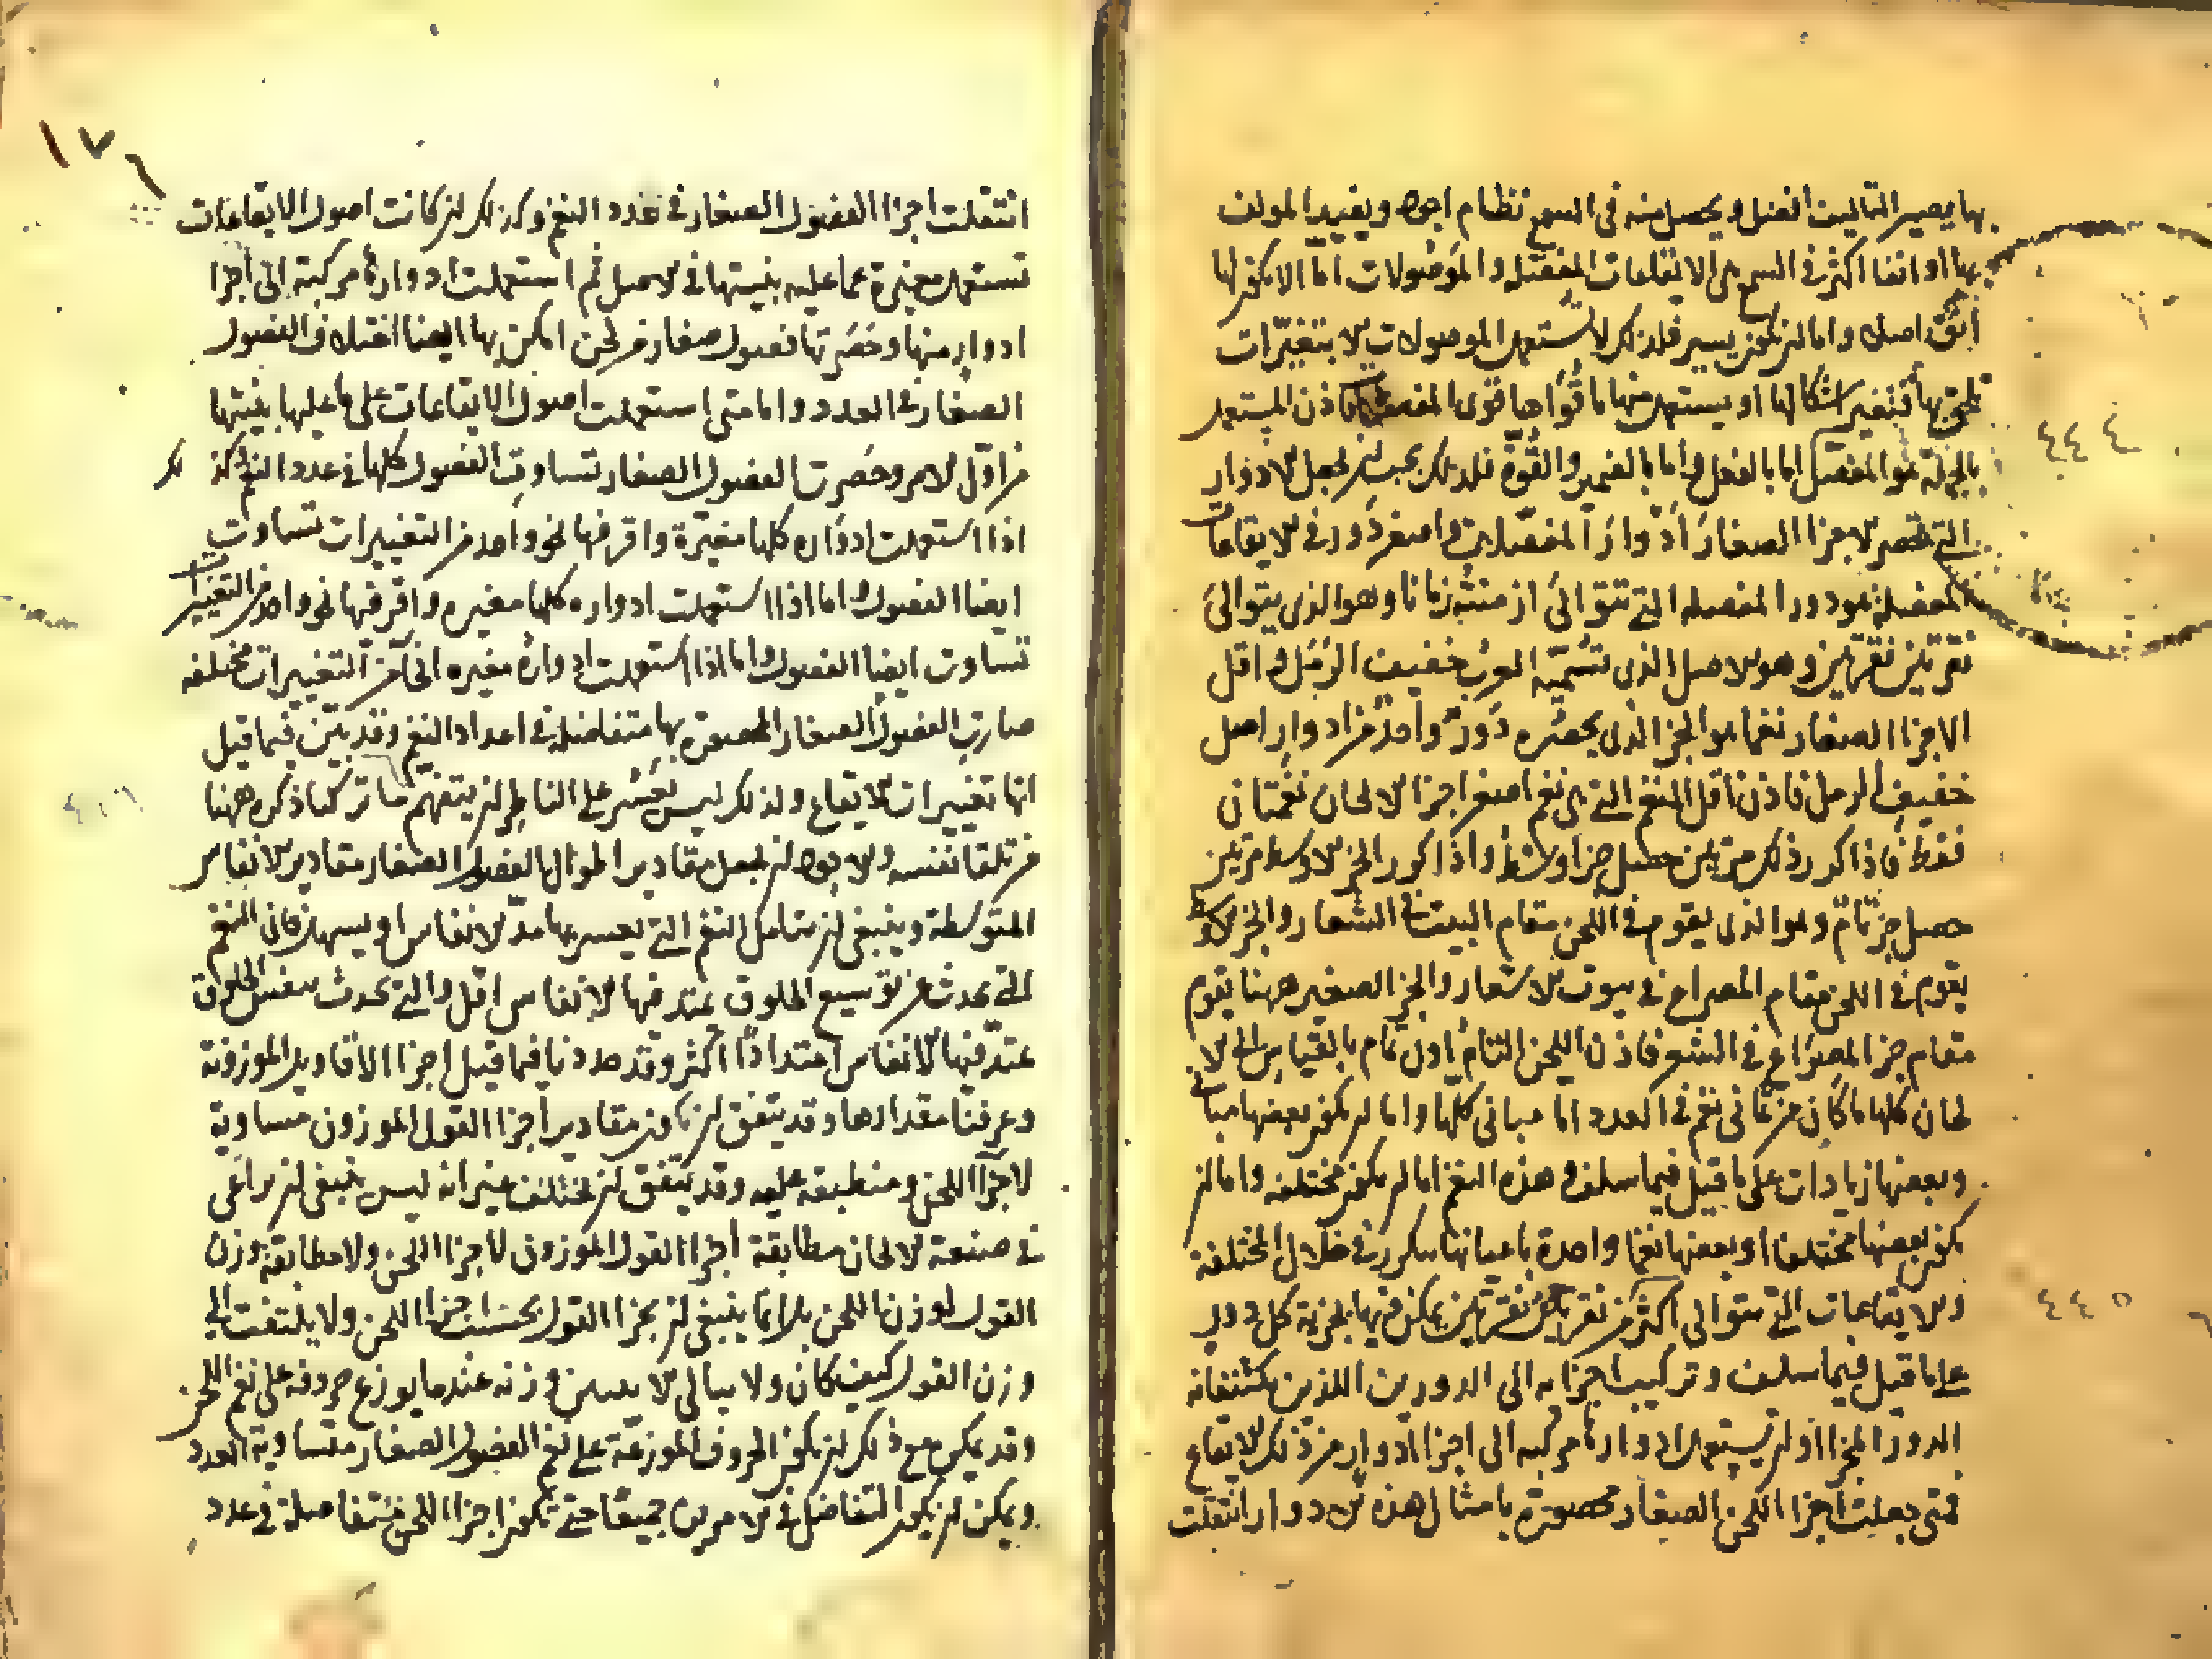 بها يصير التاليف افضل ويحصل منه في السمع نظام اجود ويفيد المولف
بها او انقا اكثر في السمع هي الايقاعات المفصله والموصولات اما الا يكون لها
انق اصلا واما ان يكون يسير فلذلك لا تستعمل الموصولات الا بتغيرات
تلحق بها فتغير اشكالها او يستعمل منها ما قواها قوى المفصلات فاذن المستعمل
بالجملة هو المفصل اما بالفعل واما بالضمير والقوة فلذلك يجب ان نجعل الادوار
التي تحصر الاجزا الصغار ادوار المفصلات واصغر دور في الايقاعات
المفصلة هو دور المفصله التي تتوالى ازمنته زمانا وهو الذي يتوالى
نقرتين نقرتين وهو الاصل الذي تسميه العرب خفيف الرمل واقل
الاجزا الصغار نغما هو الجز الذي يحصره دور واحد من ادوار اصل
خفيف الرمل فاذن اقل النغم التي هي نغم اصغر اجزا الالحان نغمتان
فقط فاذا كرر ذلك مرتين حصل جزا وسط واذا كرر الجز الاوسط مرتين
حصل جز تام وهو الذي يقوم في اللحن مقام البيت في الشعار والجز الاوسط
يقوم في اللحن مقام المصراع في بيوت الاشعار والجز الصغير ههنا يقوم
مقام جز المصراع في الشعر فاذن اللحن التام اذن تمام بالقياس الى الا
لحان كلها ما كان من ثماني نغم في العدد اما مباني كلها واما ان يكون بعضها مباني
وبعضها زيادات على ما قيل فيما سلف وهذه النغم اما ان يكون مختلفه واما ان
يكون بعضها مختلفا وبعضها نغما واحدة باعيانها تتكرر في خلال المختلفة
والايقاعات التي تتوالى اكثر من نقرتين نقرتين يمكن فيها تجزية كل دور
على ما قيل فيما سلف وتركيب اجزايه الى الدورين اللذين يكتنفانه
الدور المجزا او ان يستعمل ادوارها مركبه الى اجزا ادوار من ذلك الايقاع
فمتى جعلت اجزا اللحن الصغار محصورة بامثال هذه الادوار انتقلت
١٧٦
انتقلت اجزا الفصول الصغار في عدد النغم وكذلك ان كانت اصول الايقاعات
تستعمل مغيرة عما عليه بنيتها في الاصل ثم استعملت ادوارها مركبة الى اجزا
ادوار منها وحصرت بها فصول صغار من لحن امكن بها ايضا اختلاف الفصول
الصغار في العدد واما متى استعملت اصول الايقاعات على ما عليها بنيتها
من اول الامر وحصرت الفصول الصغار تساوت الفصول كلها في عدد النغم وكذلك
اذا استعملت ادواره كلها مغيرة واقر فيها نحو واحد من التغييرات تساوت
ايضا الفصول واما اذا استعملت ادواره كلها مغيره واقر فيها نحو واحد من التغييرات
تساوت ايضا الفصول واما اذا استعملت ادواره مغيره انحا من التغييرات مختلفه
صارت الفصول الصغار المحصورة بها متفاضله في اعداد النغم وقد تبين فيما قيل
انها تغييرات الايقاع ولذلك ليس يعسر على الناظر ان يتفهم ما تركنا ذكره ههنا
من تلقا نفسه والاجود ان نجعل مقادير اطوال الفصول الصغار مقادير الانفاس
المتوسطة وينبغي ان نتامل النغم التي يعسر بها مد الانفاس او يسهل فان النغم
التي تحدث عن توسيع الحلوق تمتد فيها الانفاس اقل والتي تحدث الحلوق
تمتد فيها الانفاس امتدادا اكثر وقد حددنا فيما قيل اجزا الاقاويل الموزونة
وعرفنا مقدارها وقد يتفق ان تكون مقادير اجزا القول الموزون مساوية
لاجزا اللحن ومنطبقه عليه وقد يتفق ان تختلف غير انه ليس ينبغي ان يراعى
في صنعة الالحان مطابقة اجزا القول الموزون لاجزا اللحن ولا مطابقة وزن
القول لوزن اللحن بل انما ينبغي ان يجزا القول بحسب اجزا اللحن ولا يلتفت الى
وزن القول كيف كان ولا يبالي الا يحسن وزنه عندما يوزع حروفه على نغم اللحن
وقد يمكن مع ذلك ان يكون الحروف الموزعة على نغم الفصول الصغار متساوية العدد
ويمكن ان يكون التفاضل في الامرين جميعا حتى تكون اجزا اللحن متفاضلة في عدد